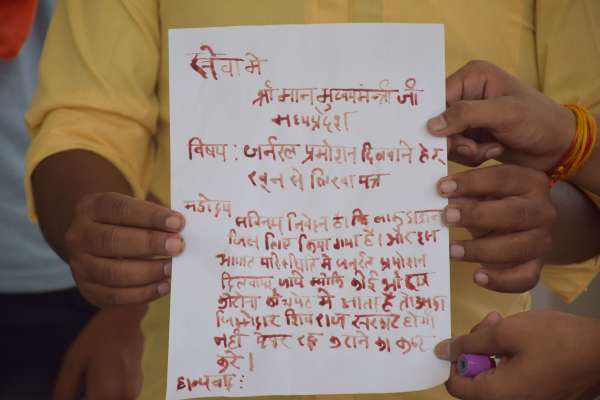 सेवा मे
श्री मान् मुख्यमंत्री जी
मध्यप्रदेश
विषय : जर्नरल प्रमोशन दिलवाने हेतु
खून से लिखा पत्र
महोदय
सविनय निवेदन है। कि लाकडाउन
जिस लिए किया गया है। और इस
आपात परिस्थिति मे जनरल प्रमोशन
दिलवाया जाये क्योंकि कोई भी छात्र
कोरोना की चपेट में आता है तो
जिम्मेदार शिवराज सरकार होगी
नही पेपर रद्द कराने का कष्ट
करे।
धन्यवाद :